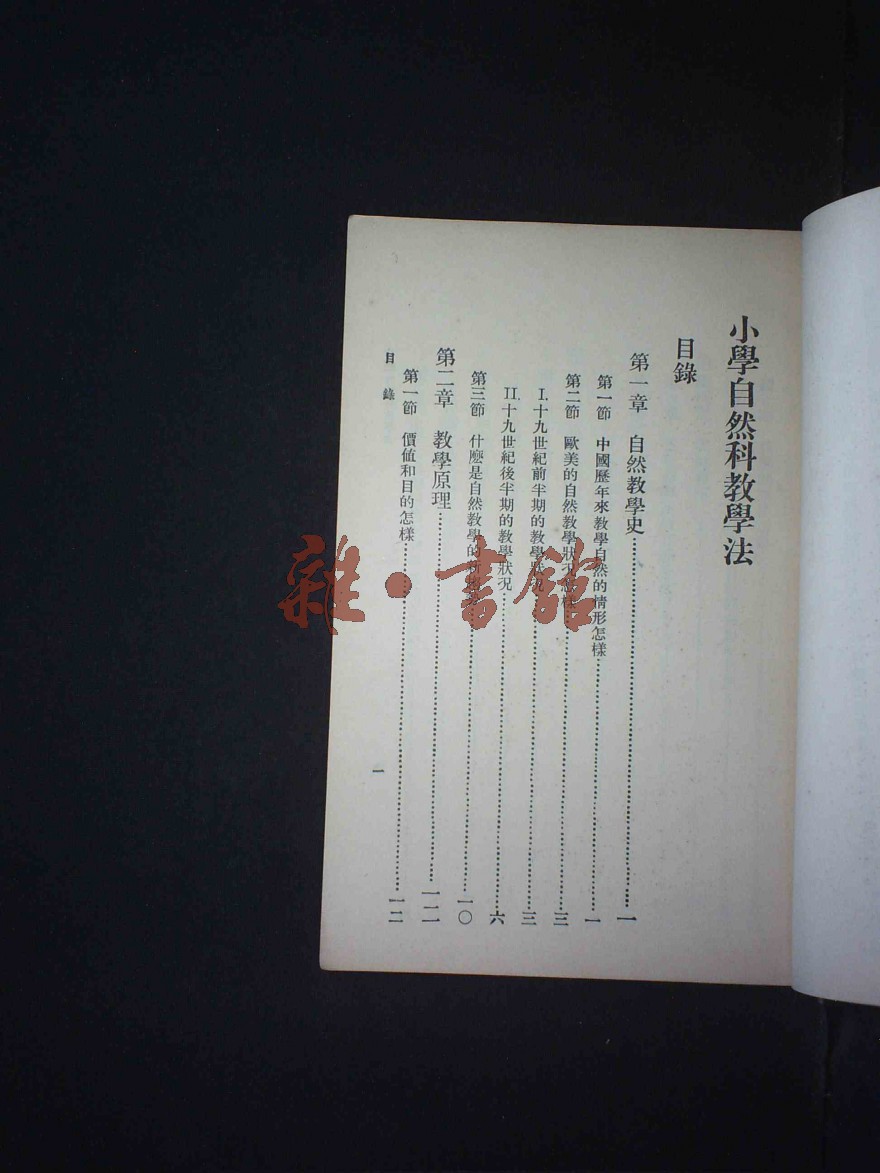 小學自然科教學法
目錄
第一章 自然教學史……一
第一節 中國歷年來教學自然的情形怎樣……一
第二節 歐美的自然教學狀況怎樣……三
I. 十九世紀前半期的教學狀況……三
II. 十九世紀後半期的教學狀况……六
第三節 什麽是自然教學的……一〇
第二章 教學原理……一二
第一節 價値和目的怎樣……一二
目錄
一
雜·書館